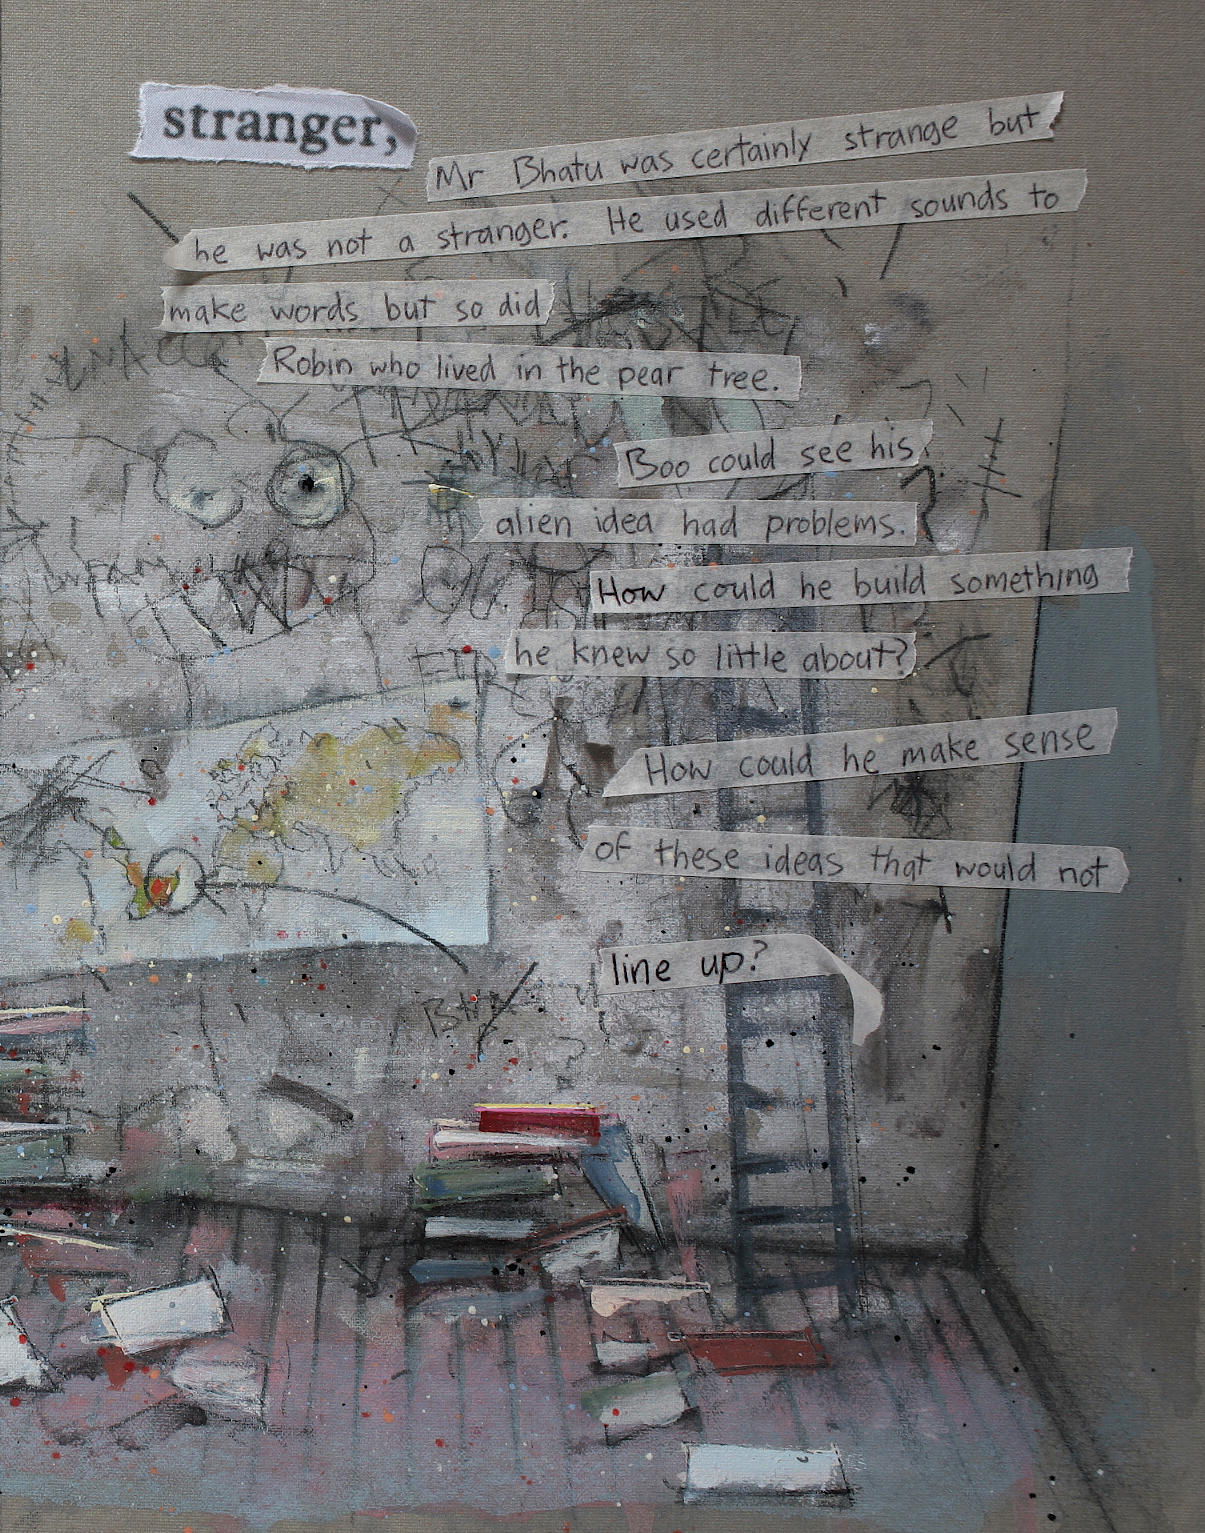 stranger,
Mr Bhatu was certainly strange but
he was not a stranger. He used different sounds to
make words but so did
Robin who lived in the pear tree.
Boo could see his
alien idea had problems.
How could he build something
he knew so little about?
How could he make sense
of these ideas that would not
line up?